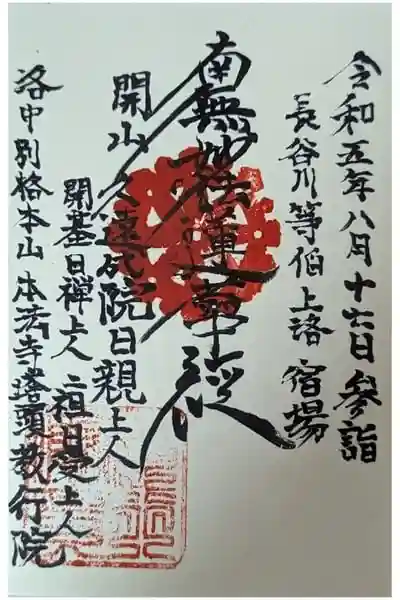 令和五年八月十六日参詣
長谷川等伯上洛宿場
南無妙法蓮華経
開山久遠成院日親上人
開基日禅上人二祖日受上人
洛中別格本山本法寺塔頭教行院